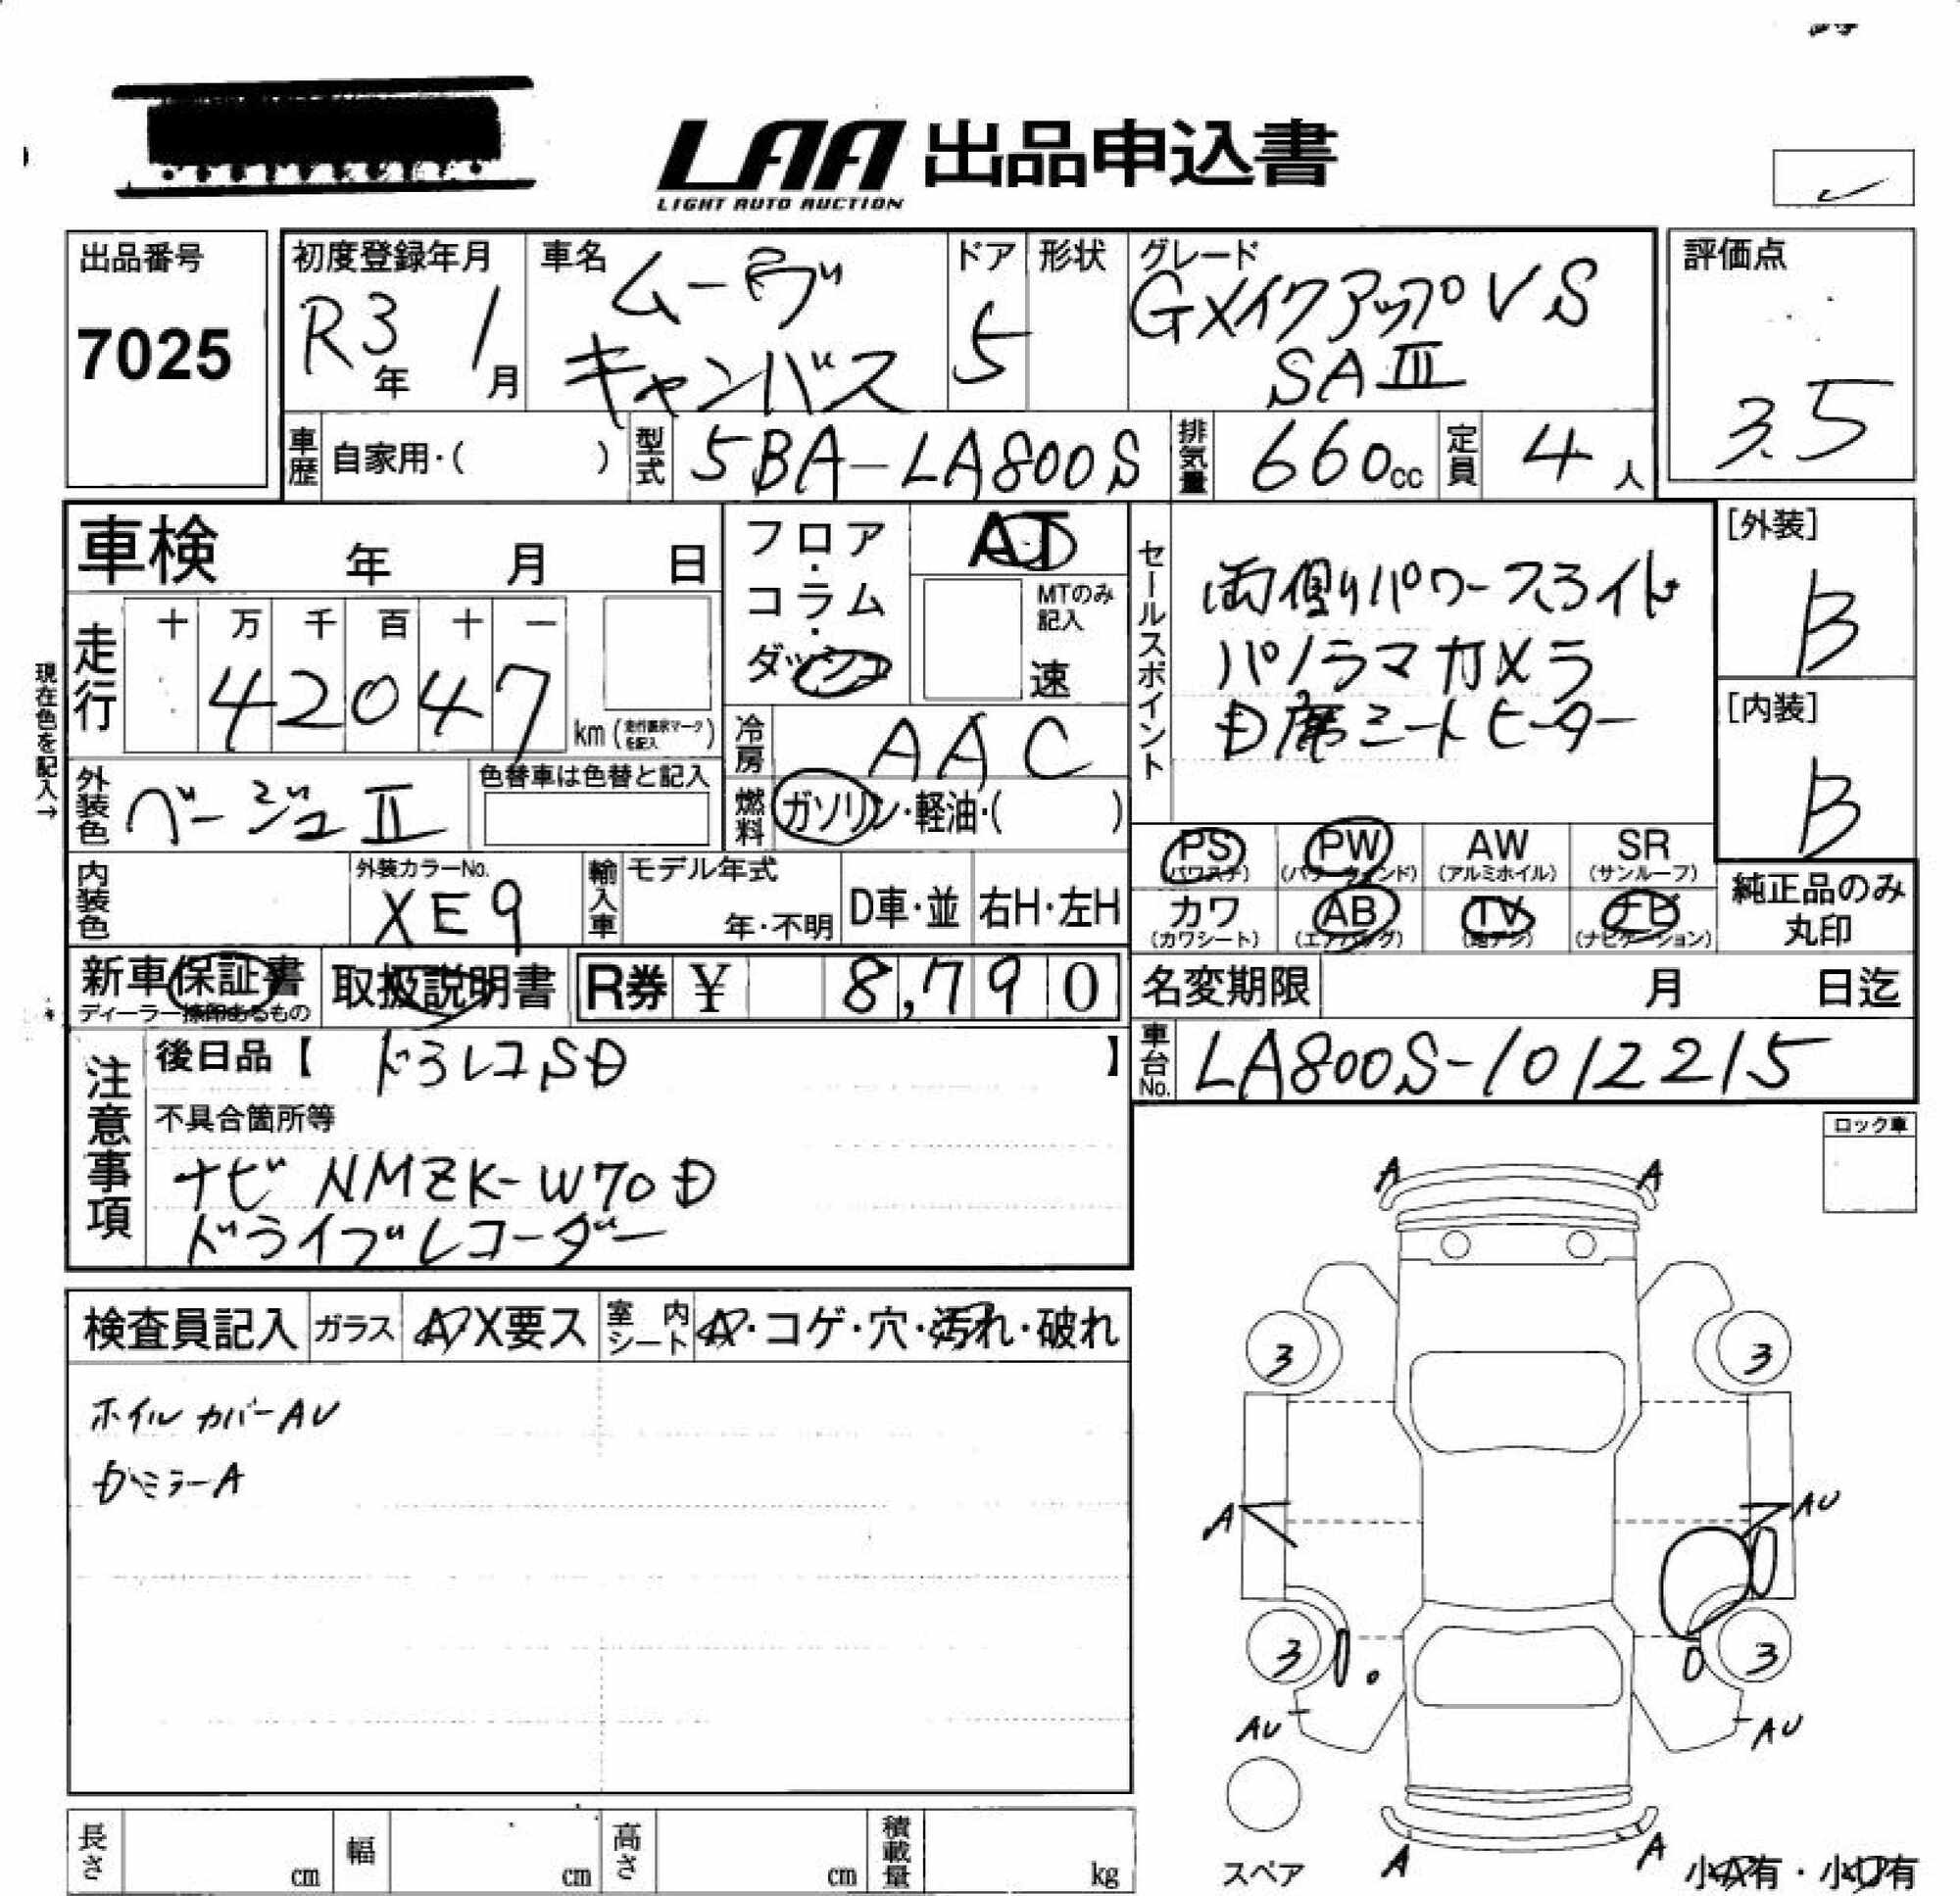 LAA 出品申込書
LIGHT AUTO AUCTION
出品番号
7025
初度登録年月
R3年 1月
車名
ムーヴ
キャンバス
ドア
5
形状
グレード
GメイクアップVS
SAⅢ
評価点
3.5
車歴 自家用・( )
型式 5BA-LA800S
排気量 660cc
定員 4人
車検 年 月 日
フロア・コラム・ダッシュ
AT
MTのみ記入
速
セールスポイント
両側パワースライド
パノラマカメラ
D席シートヒーター
[外装]
B
[内装]
B
現在色を記入→
走行
十 万 千 百 十 一
42047
km (走行距離マークを記入)
冷房 AAC
外装色 ベージュⅡ
色替車は色替と記入
燃料 ガソリン・軽油・( )
内装色
外装カラーNo.
XE9
輸入車
モデル年式
年・不明
D車・並
右H・左H
PS (パワステ)
PW (パワーウィンド)
AW (アルミホイル)
SR (サンルーフ)
カワ (カワシート)
AB (エアバッグ)
TV (地デジ)
ナビ (ナビゲーション)
純正品のみ
丸印
新車保証書
ディーラー捺印あるもの
取扱説明書
R券 ¥ 8,790
名変期限 月 日迄
注意事項
後日品【 ドラレコSD 】
車台No. LA800S-1012215
不具合箇所等
ナビ NMZK-W70D
ドライブレコーダー
ロック車
検査員記入
ガラス A・X要ス
室内シート A・コゲ・穴・汚れ・破れ
ホイルカバーAU
Dミラー A
A A
3 3
A AU
3 3
AU AU
スペア
A A
小A有・小U有
長さ cm
幅 cm
高さ cm
積載量 kg